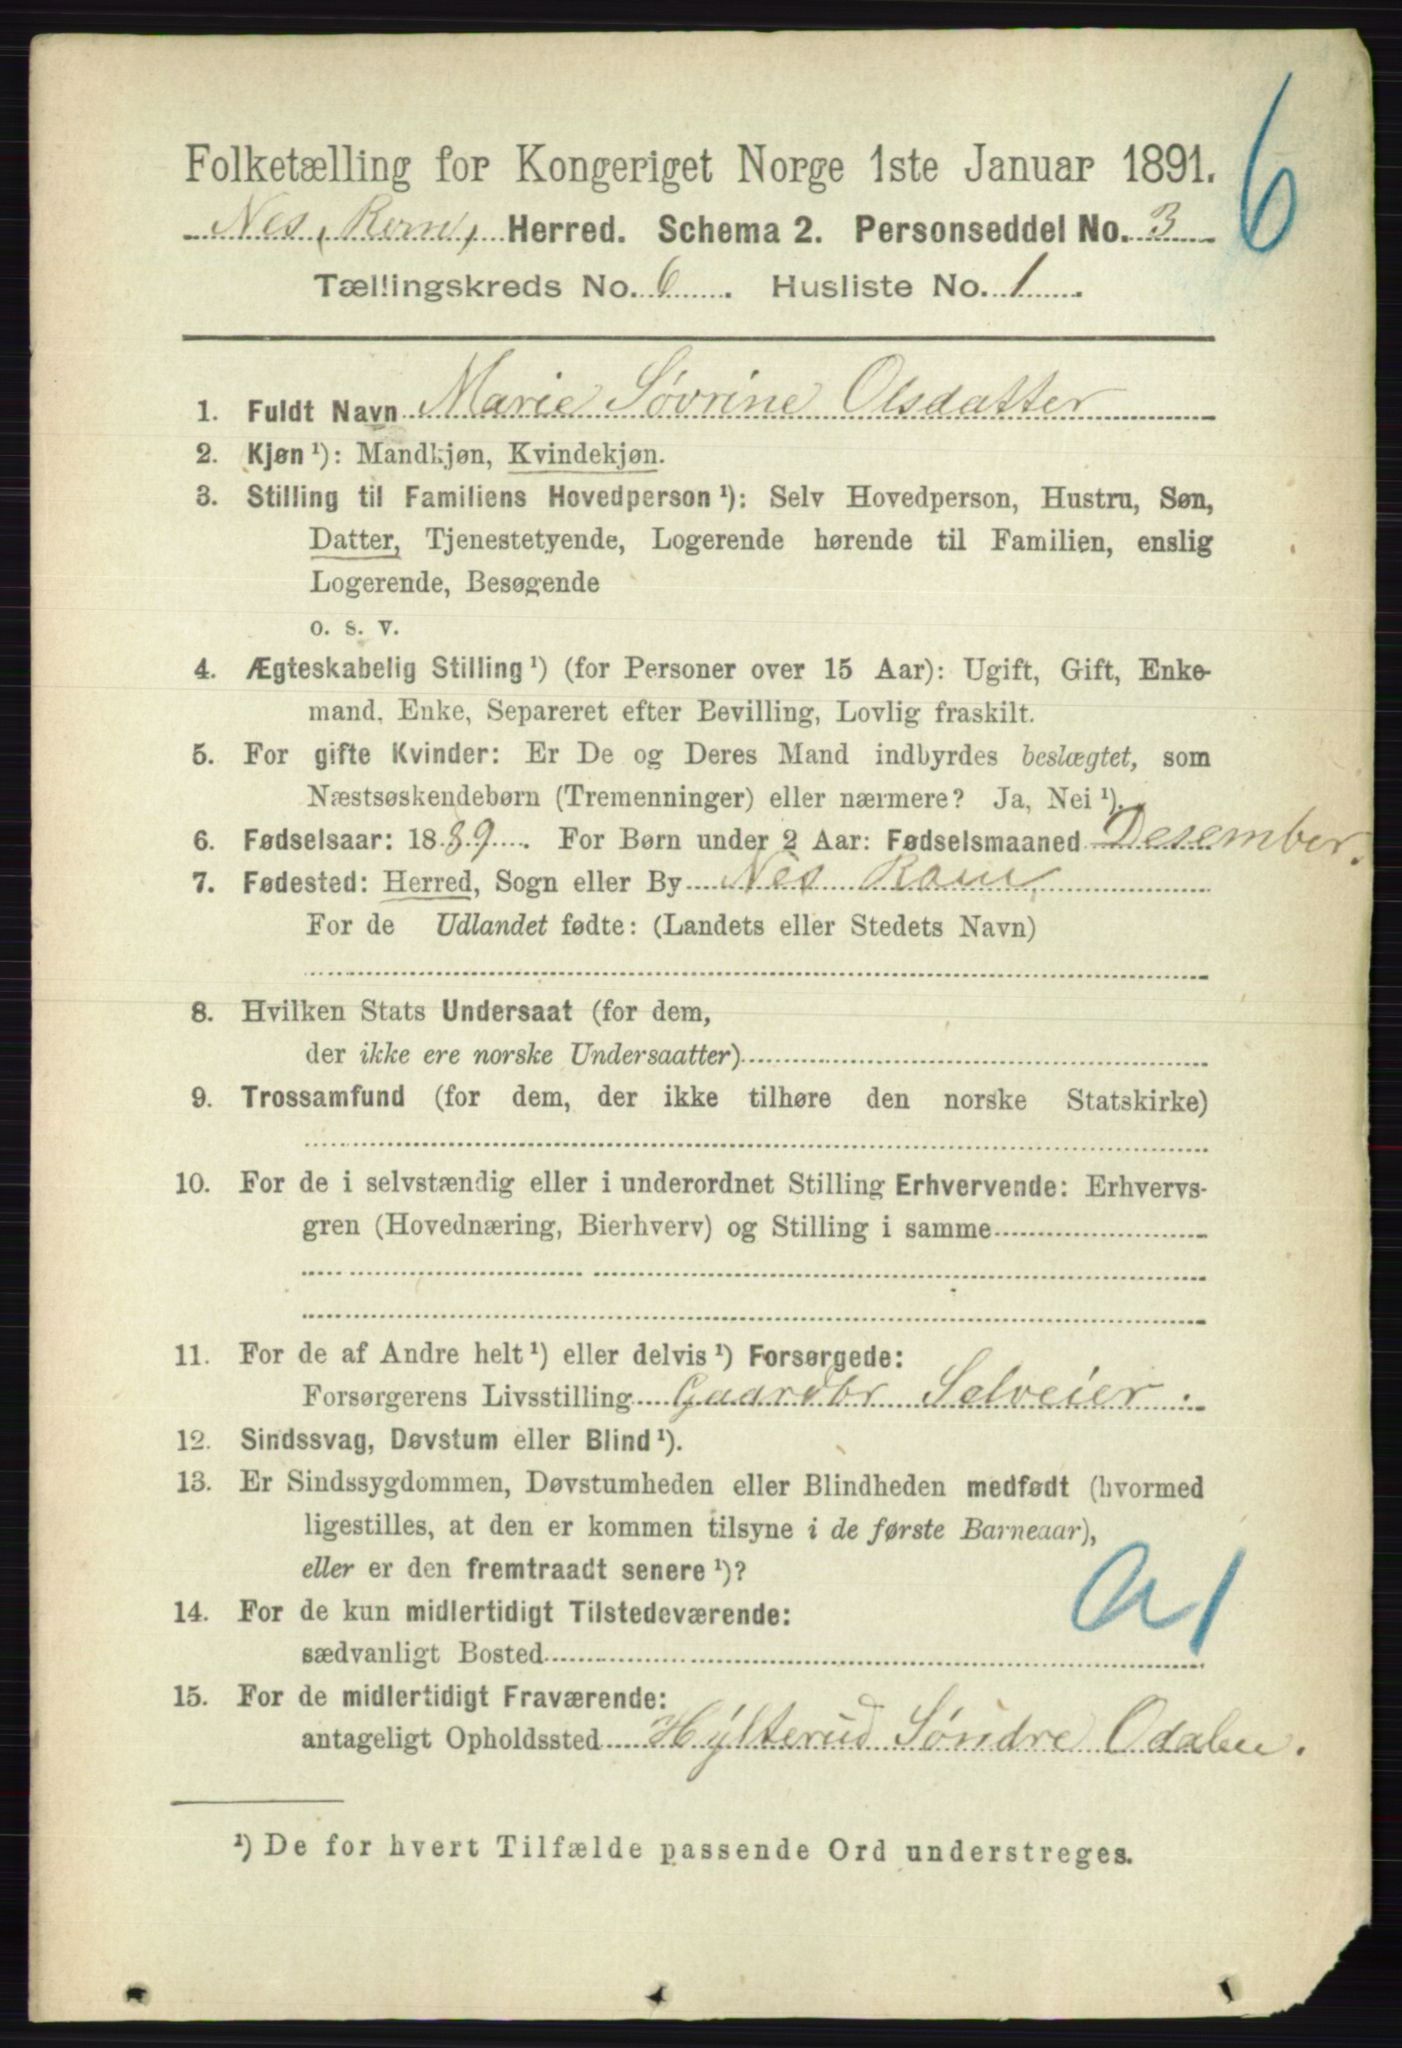 6
Folketælling for Kongeriget Norge 1ste Januar 1891.
Nes, Rom, Herred. Schema 2. Personseddel No. 3
Tællingskreds No. 6. Husliste No. 1.
1. Fuldt Navn Marie Søvrine Olsdatter
2. Kjøn ¹): Mandkjøn, Kvindekjøn.
3. Stilling til Familiens Hovedperson ¹): Selv Hovedperson, Hustru, Søn,
Datter, Tjenestetyende, Logerende hørende til Familien, enslig
Logerende, Besøgende
o. s. v.
4. Ægteskabelig Stilling ¹) (for Personer over 15 Aar): Ugift, Gift, Enke-
mand, Enke, Separeret efter Bevilling, Lovlig fraskilt.
5. For gifte Kvinder: Er De og Deres Mand indbyrdes beslægtet, som
Næstsøskendebørn (Tremenninger) eller nærmere? Ja, Nei ¹).
6. Fødselsaar: 1889. For Børn under 2 Aar: Fødselsmaaned Desember.
7. Fødested: Herred, Sogn eller By Nes Rom
For de Udlandet fødte: (Landets eller Stedets Navn)
8. Hvilken Stats Undersaat (for dem,
der ikke ere norske Undersaatter)
9. Trossamfund (for dem, der ikke tilhøre den norske Statskirke)
10. For de i selvstændig eller i underordnet Stilling Erhvervende: Erhvervs-
gren (Hovednæring, Bierhverv) og Stilling i samme
11. For de af Andre helt ¹) eller delvis ¹) Forsørgede:
Forsørgerens Livsstilling Gaardbr Selveier.
12. Sindssvag, Døvstum eller Blind ¹).
13. Er Sindssygdommen, Døvstumheden eller Blindheden medfødt (hvormed
ligestilles, at den er kommen tilsyne i de første Barneaar),
eller er den fremtraadt senere ¹)?
a1
14. For de kun midlertidigt Tilstedeværende:
sædvanligt Bosted
15. For de midlertidigt Fraværende:
antageligt Opholdssted Hylterud Søndre Odalen.
¹) De for hvert Tilfælde passende Ord understreges.